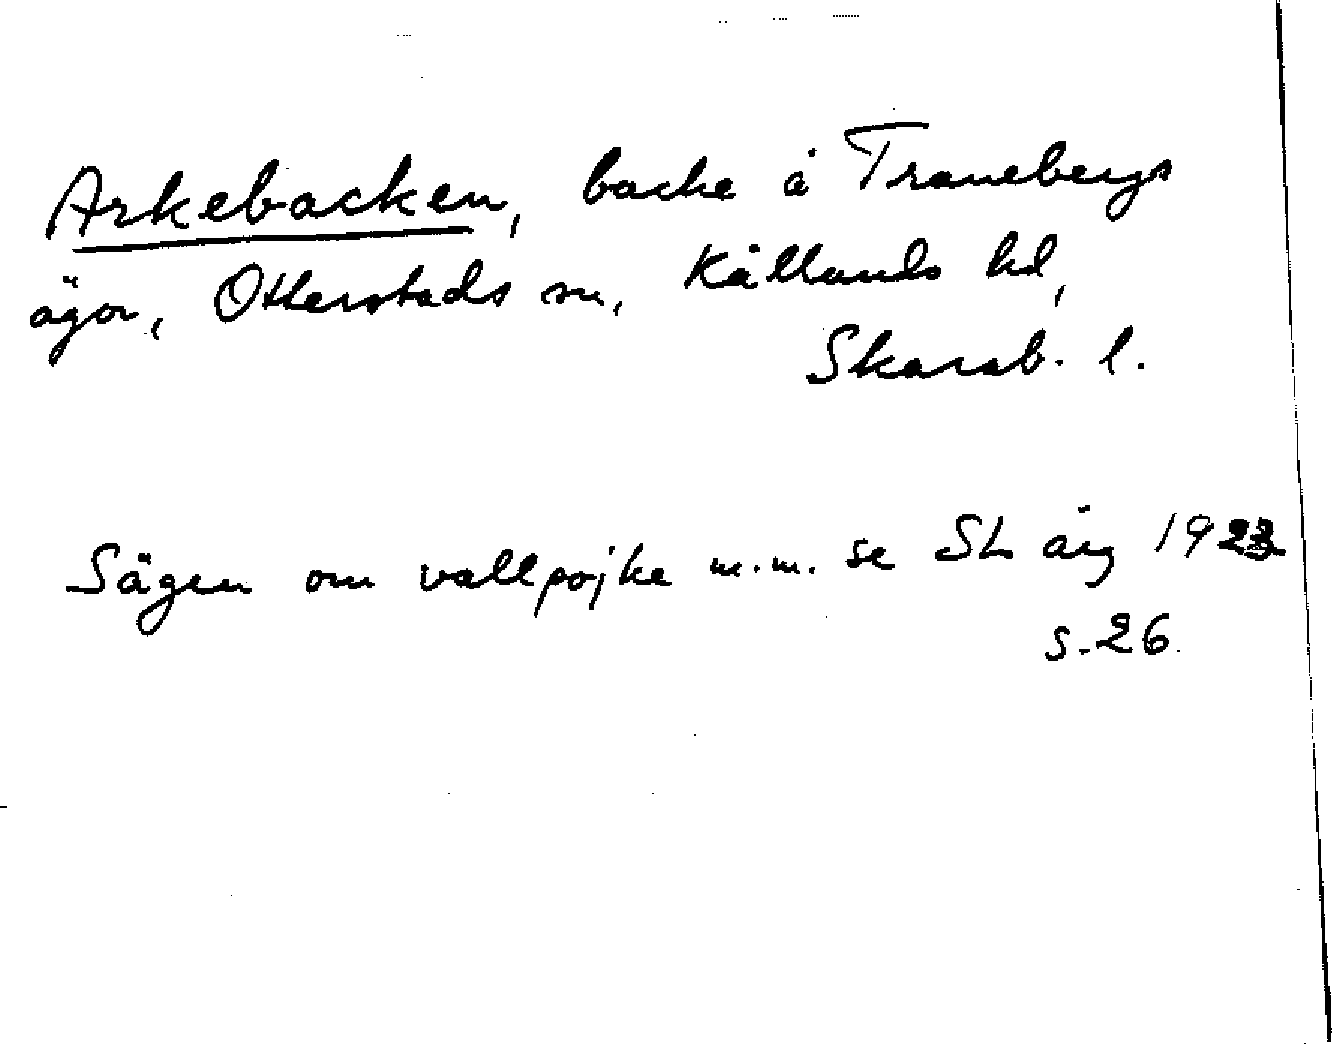 Arkebacken, backe å Tranebergs
ägor, Otterstads sn, Kållands hd,
Skarab. l.
Sägen om vallpojke m.m. se SL årg 1923
s. 26.